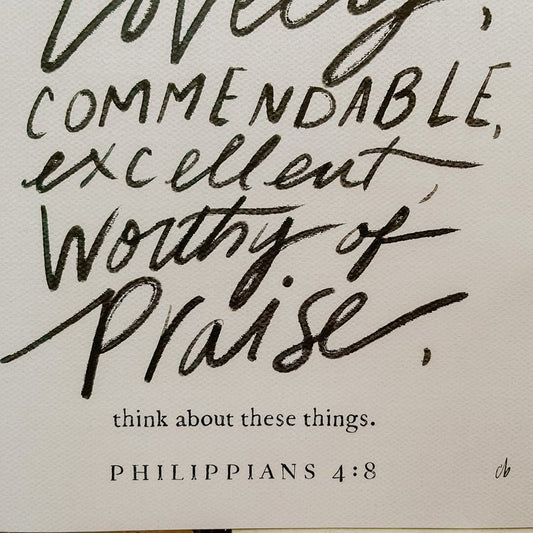 Lovely,
COMMENDABLE,
excellent,
Worthy of
Praise,
think about these things.
PHILIPPIANS 4:8
cb